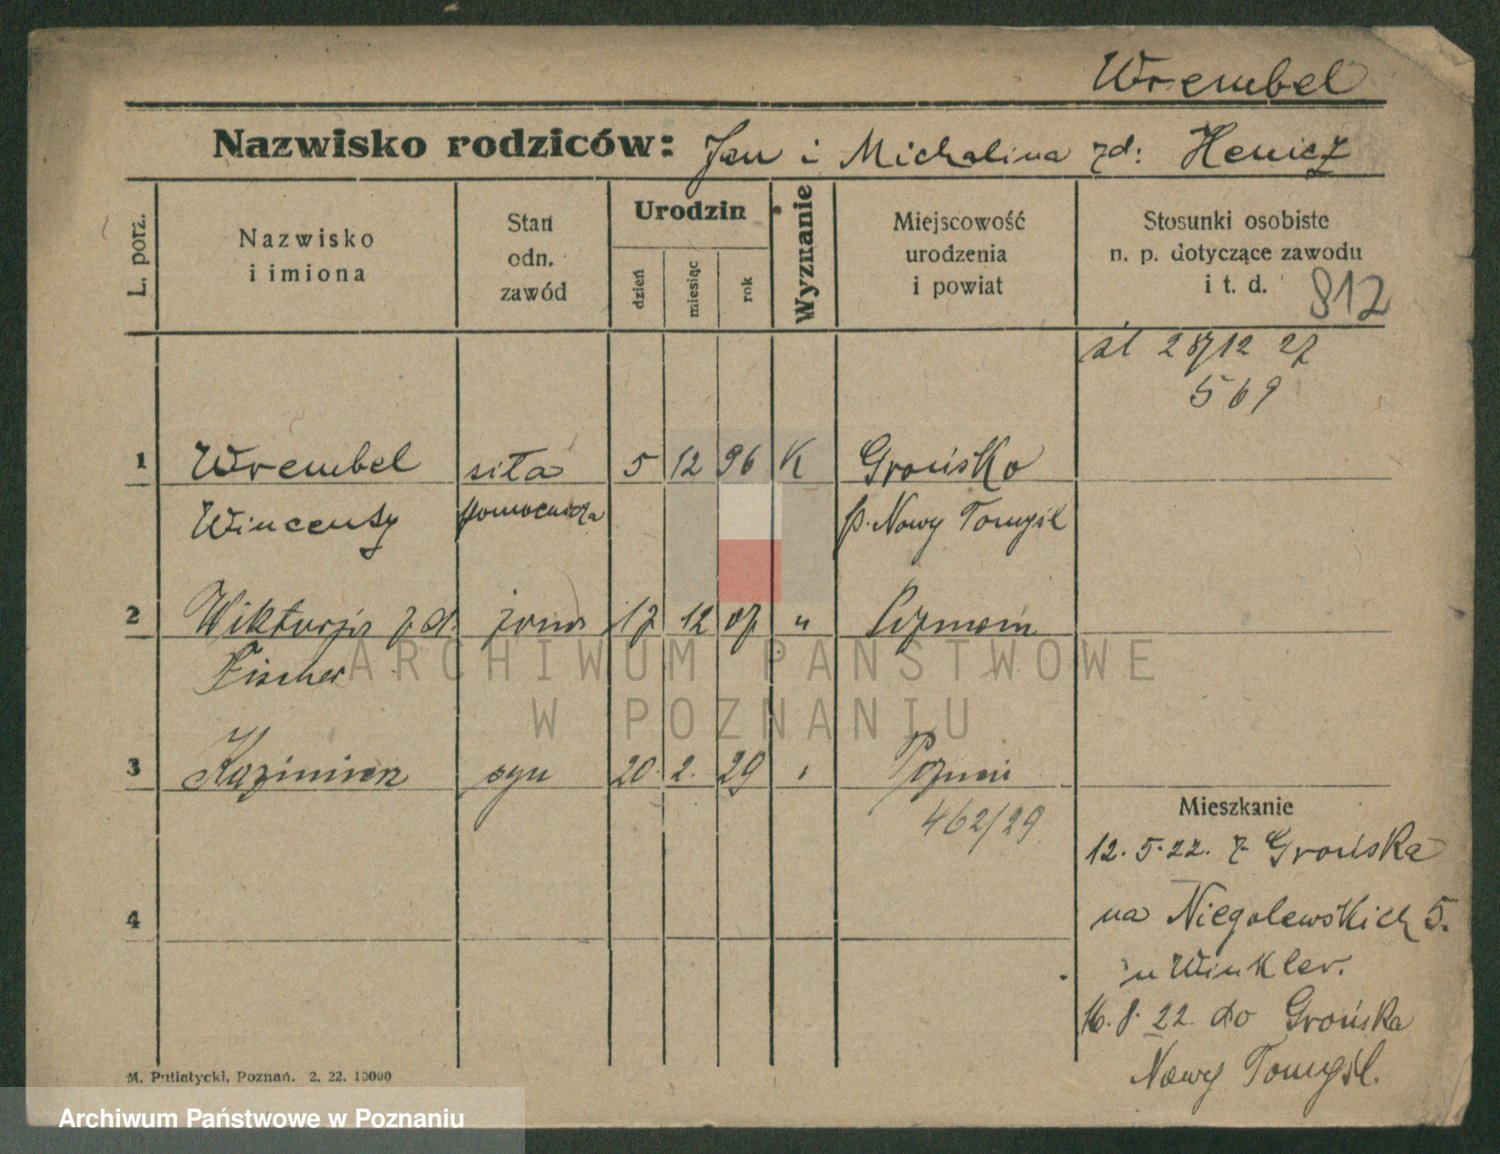 Wrembel
Nazwisko rodziców: Jan i Michalina zd: Henicz
L. porz.
Nazwisko i imiona
Stan odn. zawód
Urodzin
dzień miesiąc rok
Wyznanie
Miejscowość urodzenia i powiat
Stosunki osobiste n. p. dotyczące zawodu i t. d.
812
śl 28/12 27
569
1 Wrembel siła 5 12 96 K Grońsko
Wincenty pomocnicza p. Nowy Tomyśl
2 Wiktorja z d. żona 17 12 07 " Poznań
Fischer
3 Kazimierz syn 20. 2. 29 Poznań
462/29
Mieszkanie
12. 5. 22. z Grońska
4
na Niegolewskich 5.
u Winkler.
16. 8. 22 do Grońska
Nowy Tomyśl.
M. Putiatycki, Poznań. 2. 22. 10000
ARCHIWUM PAŃSTWOWE
W POZNANIU
Archiwum Państwowe w Poznaniu